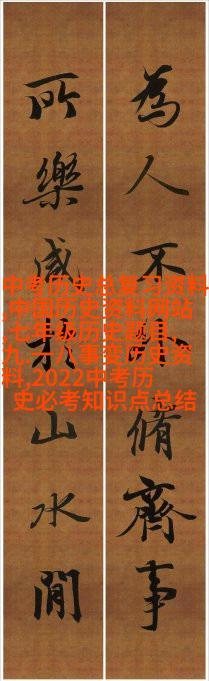 為人不脩齊事
所樂咸在山水間
中考历史总复习资料
,中国历史资料网站
,七年级历史题目,
九·一八事变历史资
料,2022中考历
史必考知识点总结